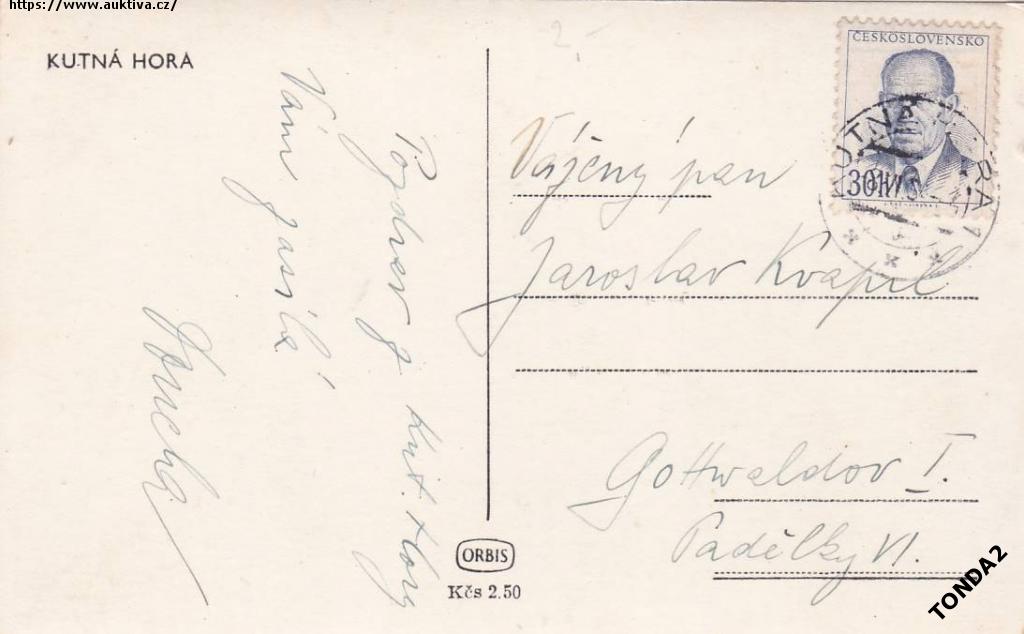 https://www.auktiva.cz/
KUTNÁ HORA
Pozdrav z Kut. Hory
Vám zasílá
2,-
ČESKOSLOVENSKO
30H
KUTNÁ HORA 1
Vážený pan
Jaroslav Kvapil
Gottwaldov I.
Padělky VI.
ORBIS
Kčs 2.50
TONDA2